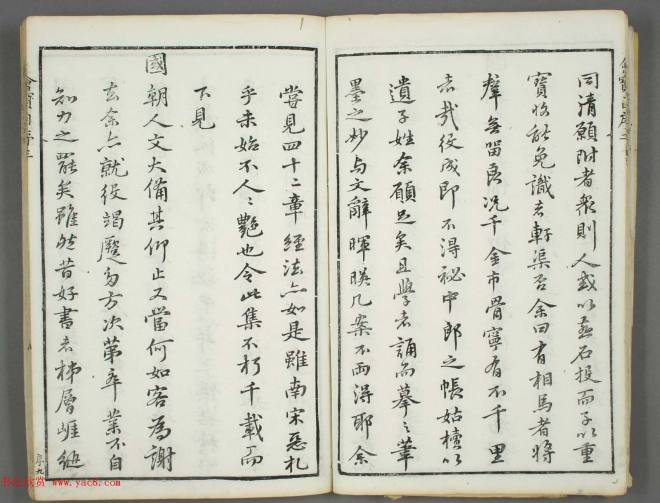 同清願附者衆則人或以燕石投而子以重
寶收能免識者軒渠否余曰有相馬者將
羣無留良况千金市骨寧有不千里
者哉役成即不得祕中郎之帳姑櫝以
遺子姓余願足矣且學者誦而摹之筆
墨之妙与文辭暉暎几案不兩得耶余
嘗見四十二章經法亦如是雖南宋惡札
乎未始不人人艷也令此集不朽千載而
下見
國朝人文大備其仰止又當何如客為謝
去余亦就役竭蹷为方次第卒業不自
知力之罷矣雖然昔好書者梯層崕縋
序九
书法欣赏 www.yac8.com